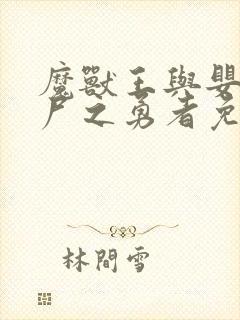 魔獸王與嬰
尸之勇者免
林間雪